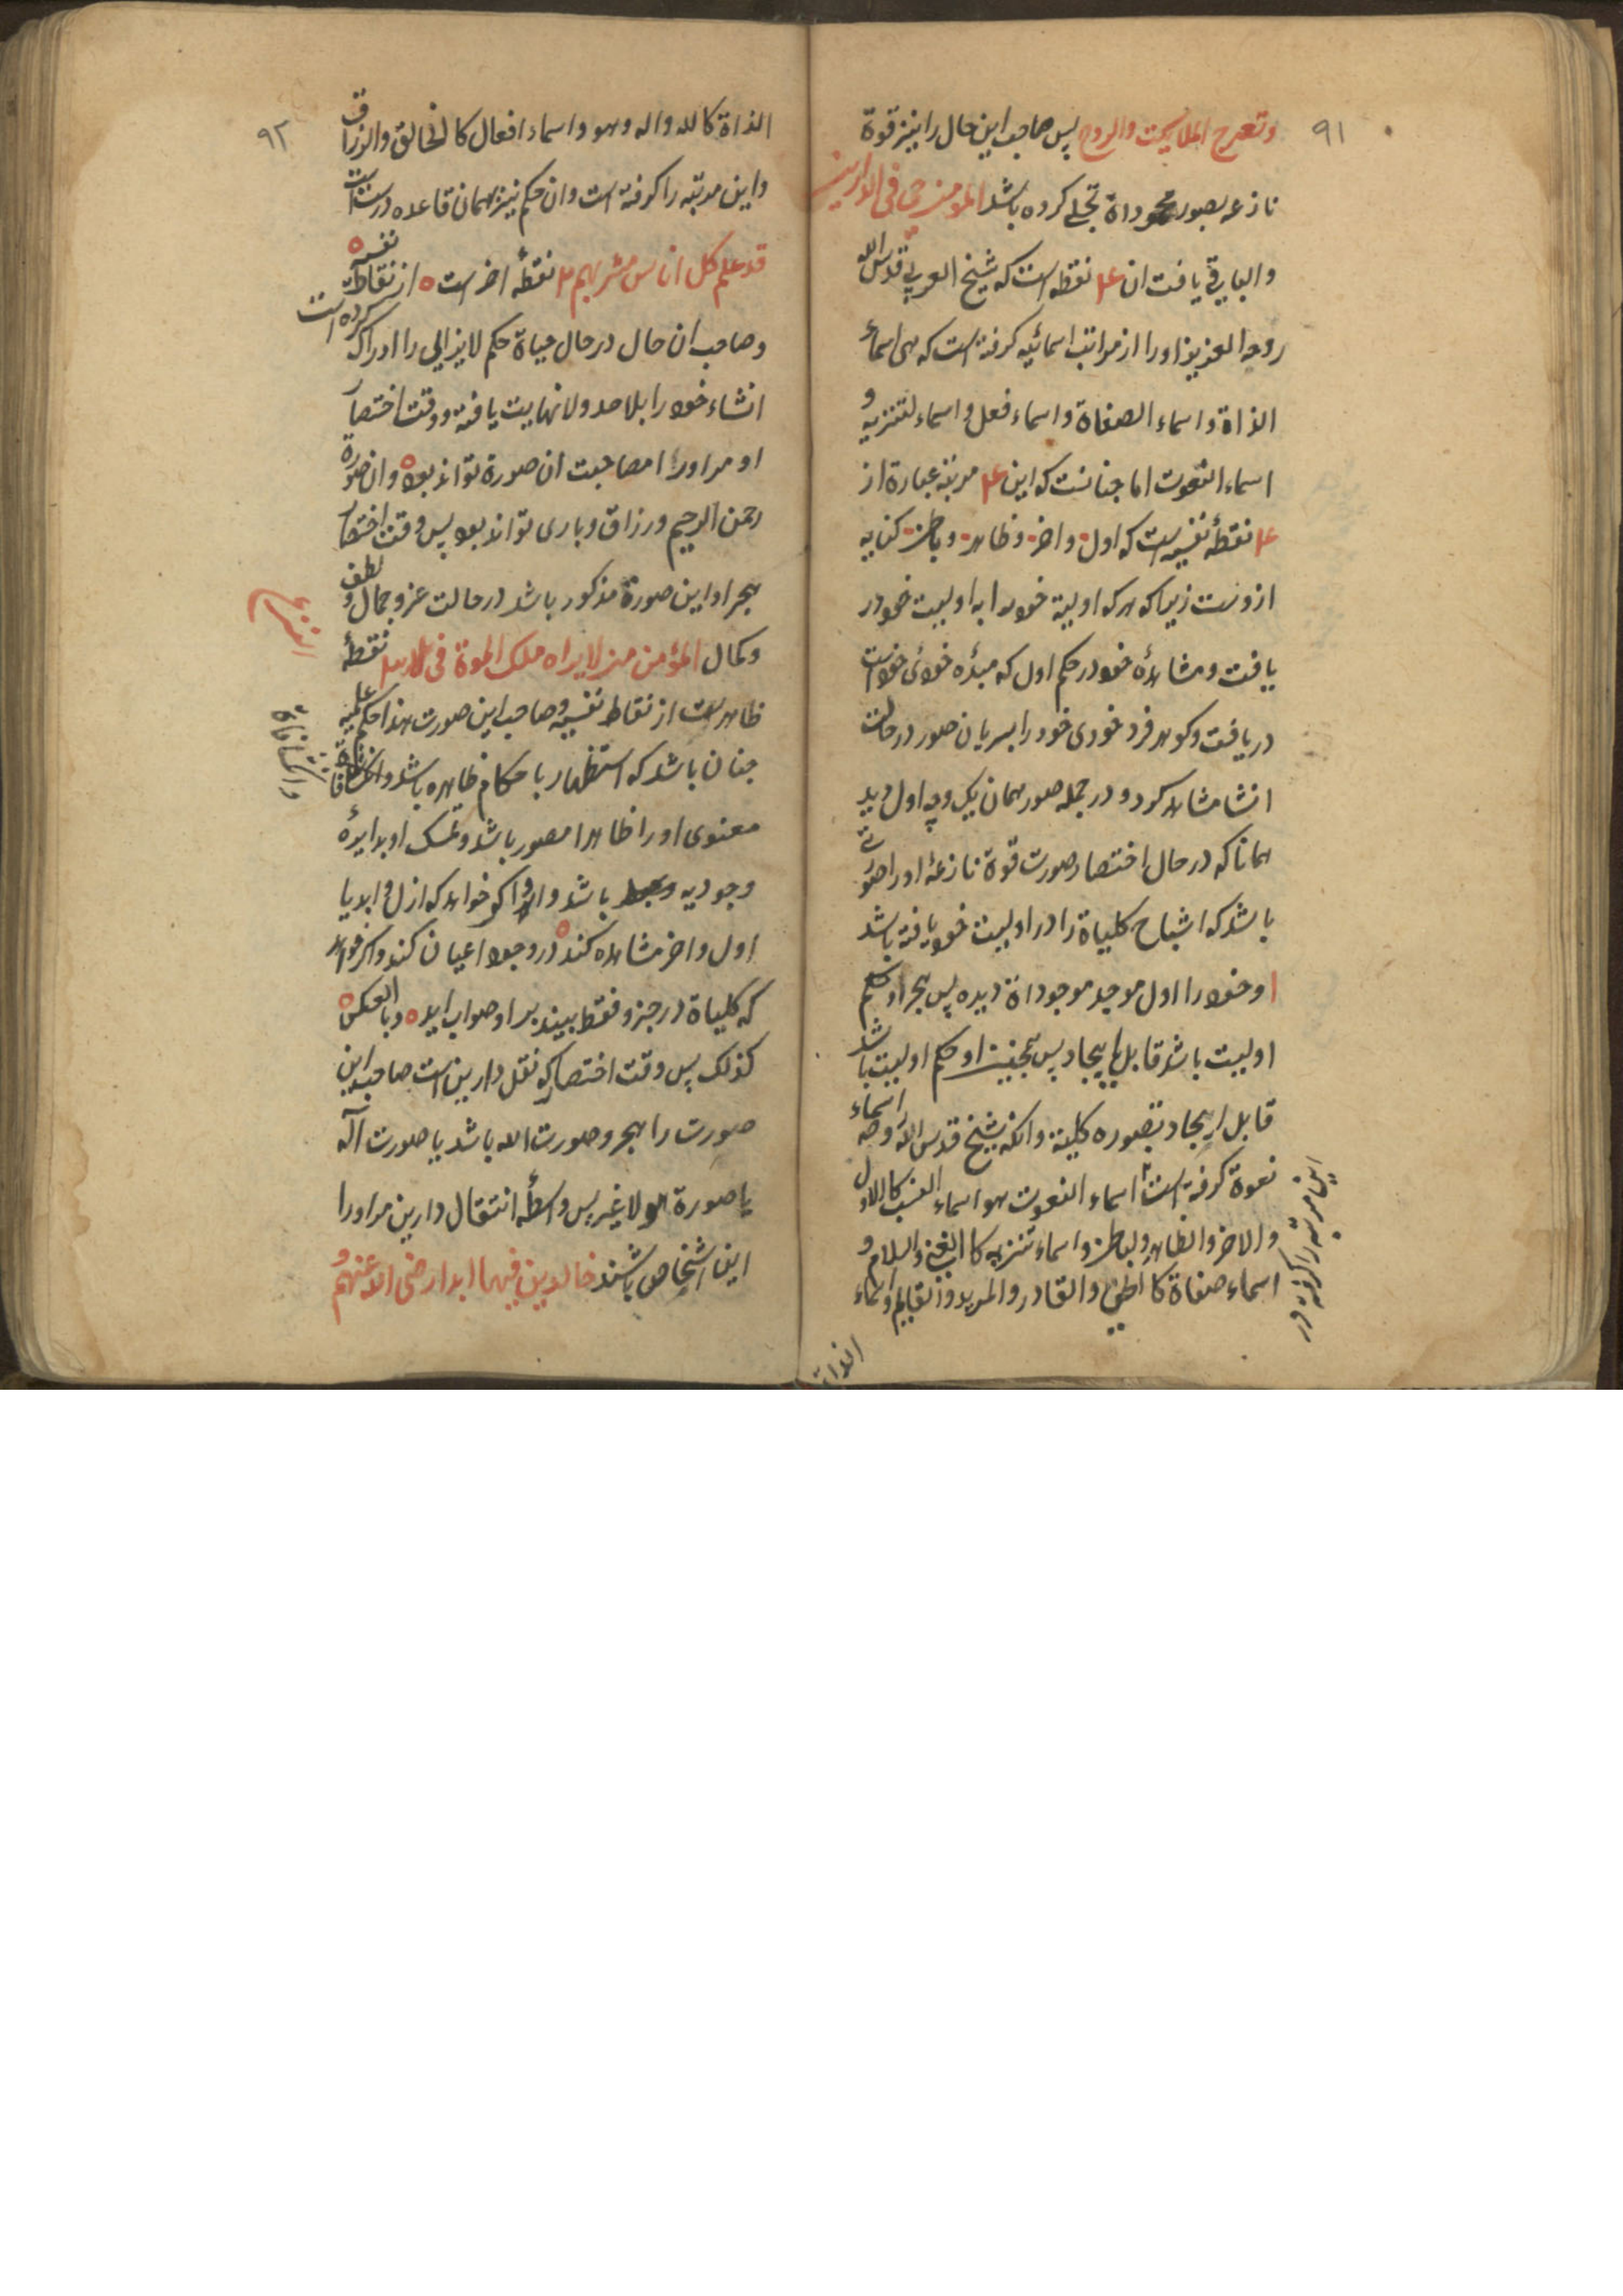 ۹۱
وتعرج الملائكة والروح پس صاحب این حال را نیز قوة
نازعه بصور موجوداة تجلی کرده باشد المؤمن حی فی الدارین
والباقی یافت ان ۴ نقطه است که شیخ العربی قدس الله
روحه العزیز او را از مراتب اسمائیه کرفته است که هی اسماء
الذاة و اسماء الصفاة و اسماء فعل و اسماء لتنزیه و
اسماء النعوت اما چنانست که این ۴ مرتبه عبارة از
۴ نقطهٔ نفسیه است که اول و اخر و ظاهر و باطن کنایه
ازوست زیرا که هرکه اولیة خود را به اولیت خود در
یافت و مشاهدهٔ خود در حکم اول که مبدٔه خودئ خود است
دریافت و کوهر فرد خودی خود را بسریان صور در حالت
انشا مشاهد کرد و در جمله صور همان یک وجه اول دید
همانا که در حال اختصار صورت قوة نازعهٔ او را صورتی
باشد که اشباح کلیاة را در اولیت خود یافته باشد
او خود را اول موجد موجوداة دیده پس بجز او حکم
اولیت باشد قابل ایجاد پس همچنین او حکم اولیت باشد
قابل ایجاد بتصوره کلیة و انکه شیخ قدس الله روحه اسماء
نعوة کرفته است اسماء النعوت هو اسماء النسب کالاول
والاخر والظاهر والباطن و اسماء تنزیه کالغنی والسلام و
اسماء صفاة کالحی والقادر والمرید والقایم و اسماء
این مرتبه را کرفته در
الذاة
۹۲
الذاة کالله واله وهو و اسماء افعال کالخالق والرزاق
و این مرتبه را کرفته است و ان حکم نیز بهمان قاعده درست است
قد علم کل اناس مشربهم ۲ نقطهٔ اخر است از نقاط نفسیه
و صاحب ان حال در حال حیاة حکم لایزالی را ادراک کرده است
انشاء خود را بلا حد و لا نهایت یافته و وقت اختصار
او مر او را مصاحبت ان صورة تواند بود و ان صورة
رحمن الرحیم و رزاق و باری تواند بود پس وقت اختصار
بجز او این صورة مذکور باشد در حالت عز و جمال و لطف
و کمال المؤمن من لا یراه ملک الموة فی بلاده ۳ نقطهٔ
ظاهر است از نقاط نفسیه و صاحب این صورت هذا حکم
چنان باشد که استظهار باحکام ظاهره باشد و
معنوی او را ظاهرا مصور باشد و تمسک او بدایرهٔ
وجودیه باشد و اکر خواهد که ازل و ابد یا
اول و اخر مشاهده کند در وجود اعیان کند و اکر خواهد
که کلیاة در جزو فقط بیند بر او صواب اید و بالعکس
کذلک پس وقت اختصار که نقل دارین است صاحب این
صورت را بجز و صورت الله باشد یا صورت آله
یا صورة هو لا غیر پس واسطهٔ انتقال دارین مر او را
این اشخاص باشند خالدین فیها ابدا رضی الله عنهم و